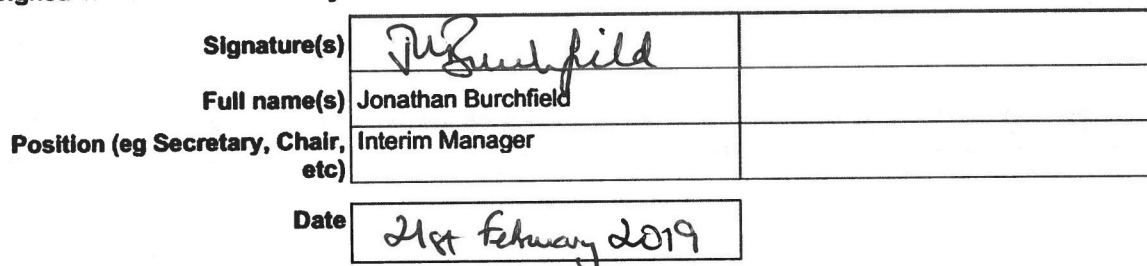 Signature(s) JM Burchfield
Full name(s) Jonathan Burchfield
Position (eg Secretary, Chair, Interim Manager
etc)
Date 21st February 2019